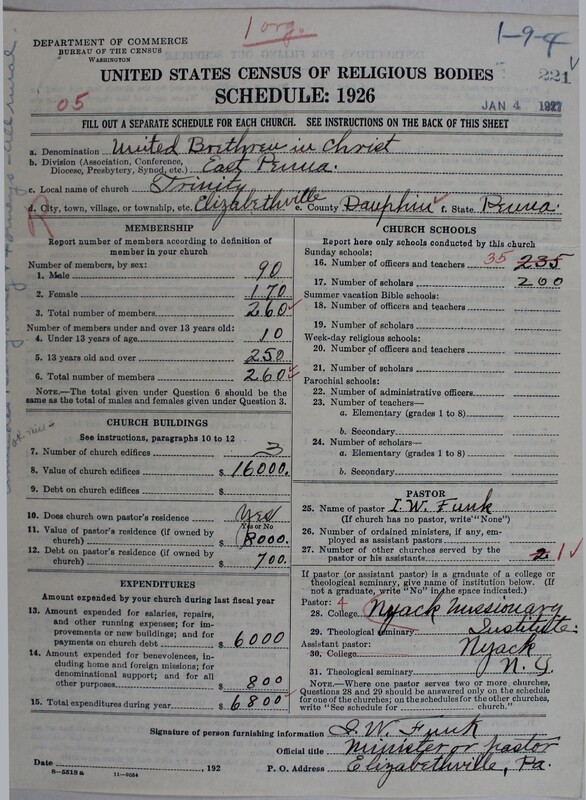 1 org.
1-9-4
DEPARTMENT OF COMMERCE
BUREAU OF THE CENSUS
WASHINGTON
UNITED STATES CENSUS OF RELIGIOUS BODIES
221
SCHEDULE: 1926
05
JAN 4 1927
FILL OUT A SEPARATE SCHEDULE FOR EACH CHURCH. SEE INSTRUCTIONS ON THE BACK OF THIS SHEET
a. Denomination United Brethren in Christ
b. Division (Association, Conference, Diocese, Presbytery, Synod, etc.) East Penna.
c. Local name of church Trinity
d. City, town, village, or township, etc. Elizabethville e. County Dauphin f. State Penna.
R
MEMBERSHIP
Report number of members according to definition of member in your church
Number of members, by sex:
1. Male 90
2. Female 170
3. Total number of members 260
Number of members under and over 13 years old:
4. Under 13 years of age 10
5. 13 years old and over 250
6. Total number of members 260
NOTE.—The total given under Question 6 should be the same as the total of males and females given under Question 3.
CHURCH BUILDINGS
See instructions, paragraphs 10 to 12
7. Number of church edifices 3
8. Value of church edifices $ 16000.
9. Debt on church edifices $
10. Does church own pastor's residence Yes
Yes or No
11. Value of pastor's residence (if owned by church) $ 8000.
12. Debt on pastor's residence (if owned by church) $ 700.
EXPENDITURES
Amount expended by your church during last fiscal year
13. Amount expended for salaries, repairs, and other running expenses; for improvements or new buildings; and for payments on church debt $ 6000
14. Amount expended for benevolences, including home and foreign missions; for denominational support; and for all other purposes $ 800
15. Total expenditures during year $ 6800
CHURCH SCHOOLS
Report here only schools conducted by this church
Sunday schools:
16. Number of officers and teachers 35 235
17. Number of scholars 200
Summer vacation Bible schools:
18. Number of officers and teachers
19. Number of scholars
Week-day religious schools:
20. Number of officers and teachers
21. Number of scholars
Parochial schools:
22. Number of administrative officers
23. Number of teachers—
a. Elementary (grades 1 to 8)
b. Secondary
24. Number of scholars—
a. Elementary (grades 1 to 8)
b. Secondary
PASTOR
25. Name of pastor I. W. Funk
(If church has no pastor, write "None")
26. Number of ordained ministers, if any, employed as assistant pastors
27. Number of other churches served by the pastor or his assistants 2 1
If pastor (or assistant pastor) is a graduate of a college or theological seminary, give name of institution below. (If not a graduate, write "No" in the space indicated.)
Pastor: 4
28. College Nyack Missionary
29. Theological seminary Institute.
Assistant pastor:
30. College Nyack
31. Theological seminary N. Y.
NOTE.—Where one pastor serves two or more churches, Questions 28 and 29 should be answered only on the schedule for one of the churches; on the schedules for the other churches, write "See schedule for church."
Signature of person furnishing information I. W. Funk
Official title Minister or pastor
Date , 192 P. O. Address Elizabethville, Pa.
8-5518 a 11-9554